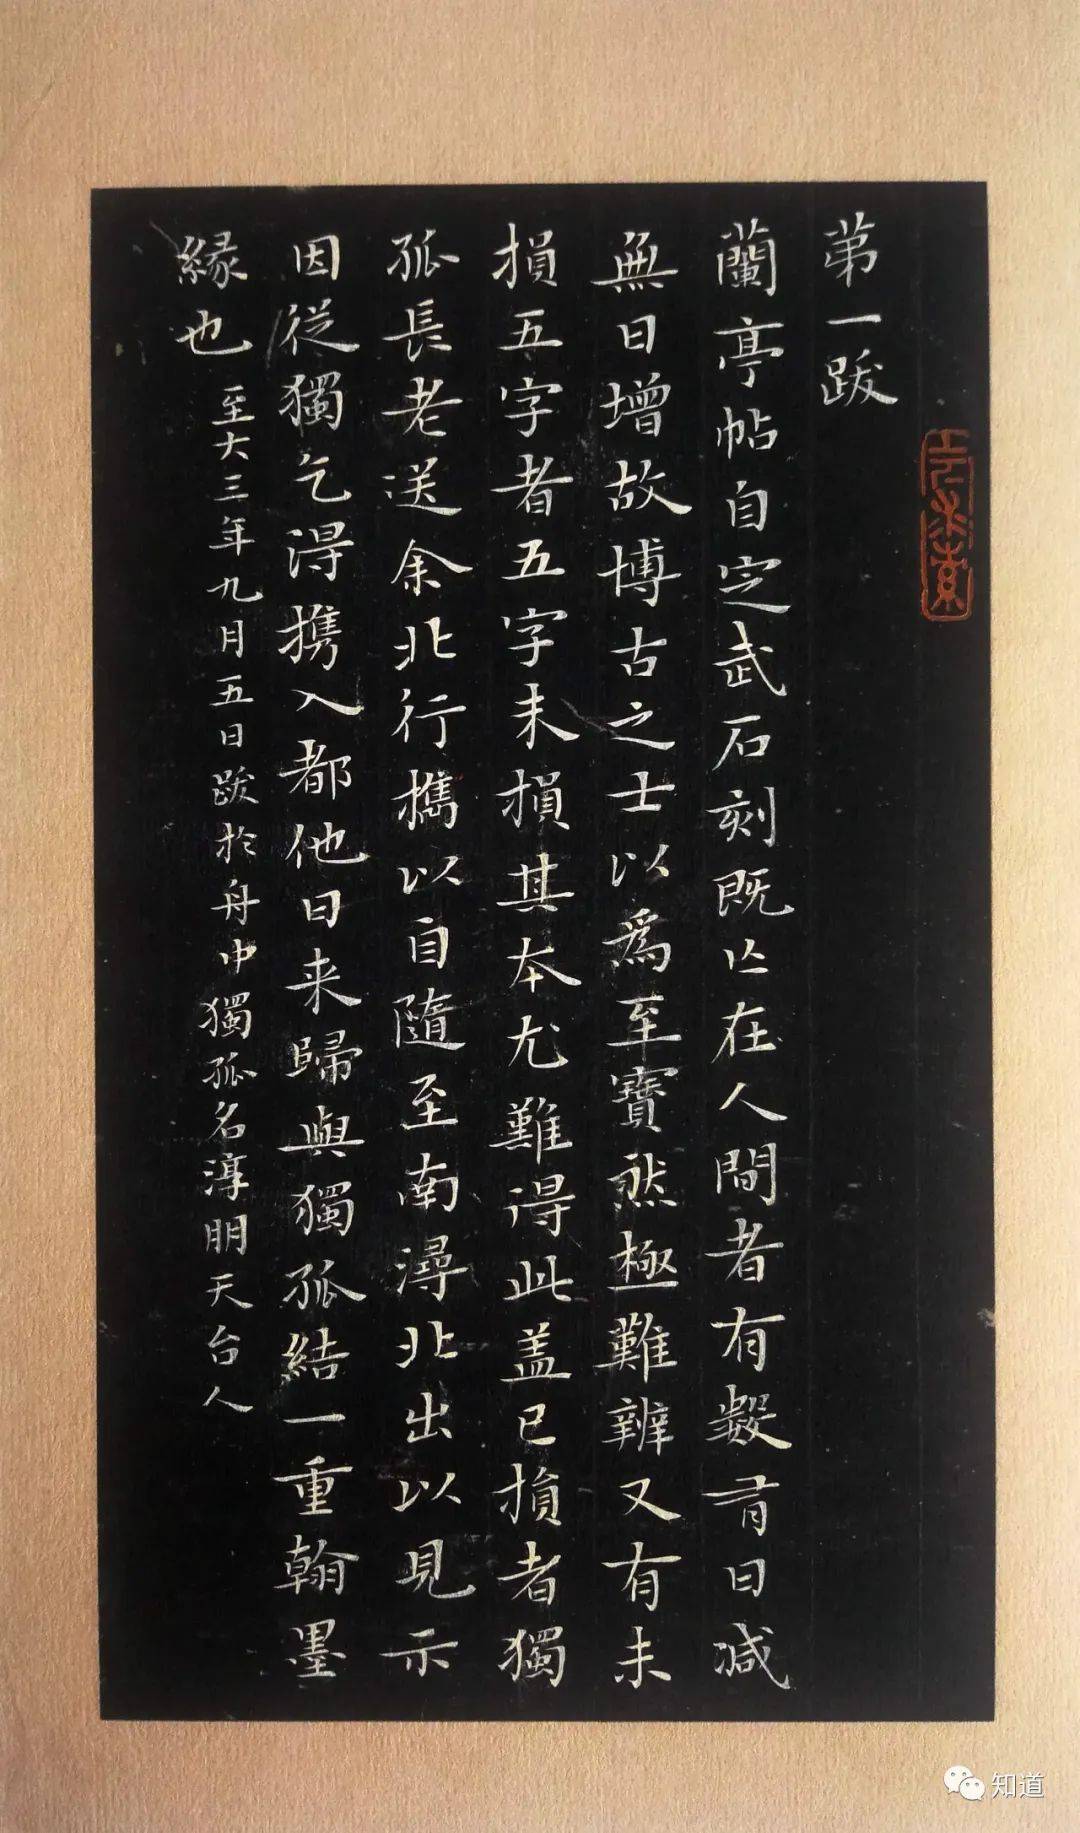 苐一跋
蘭亭帖自定武石刻既亾在人間者有數有日減
無日增故博古之士以爲至寶然極難辨又有未
損五字者五字未損其本尤難得此盖已損者獨
孤長老送余北行携以自隨至南潯北出以見示
因從獨乞得携入都他日来歸與獨孤結一重翰墨
縁也 至大三年九月五日跋於舟中獨孤名淳朋天台人
知道